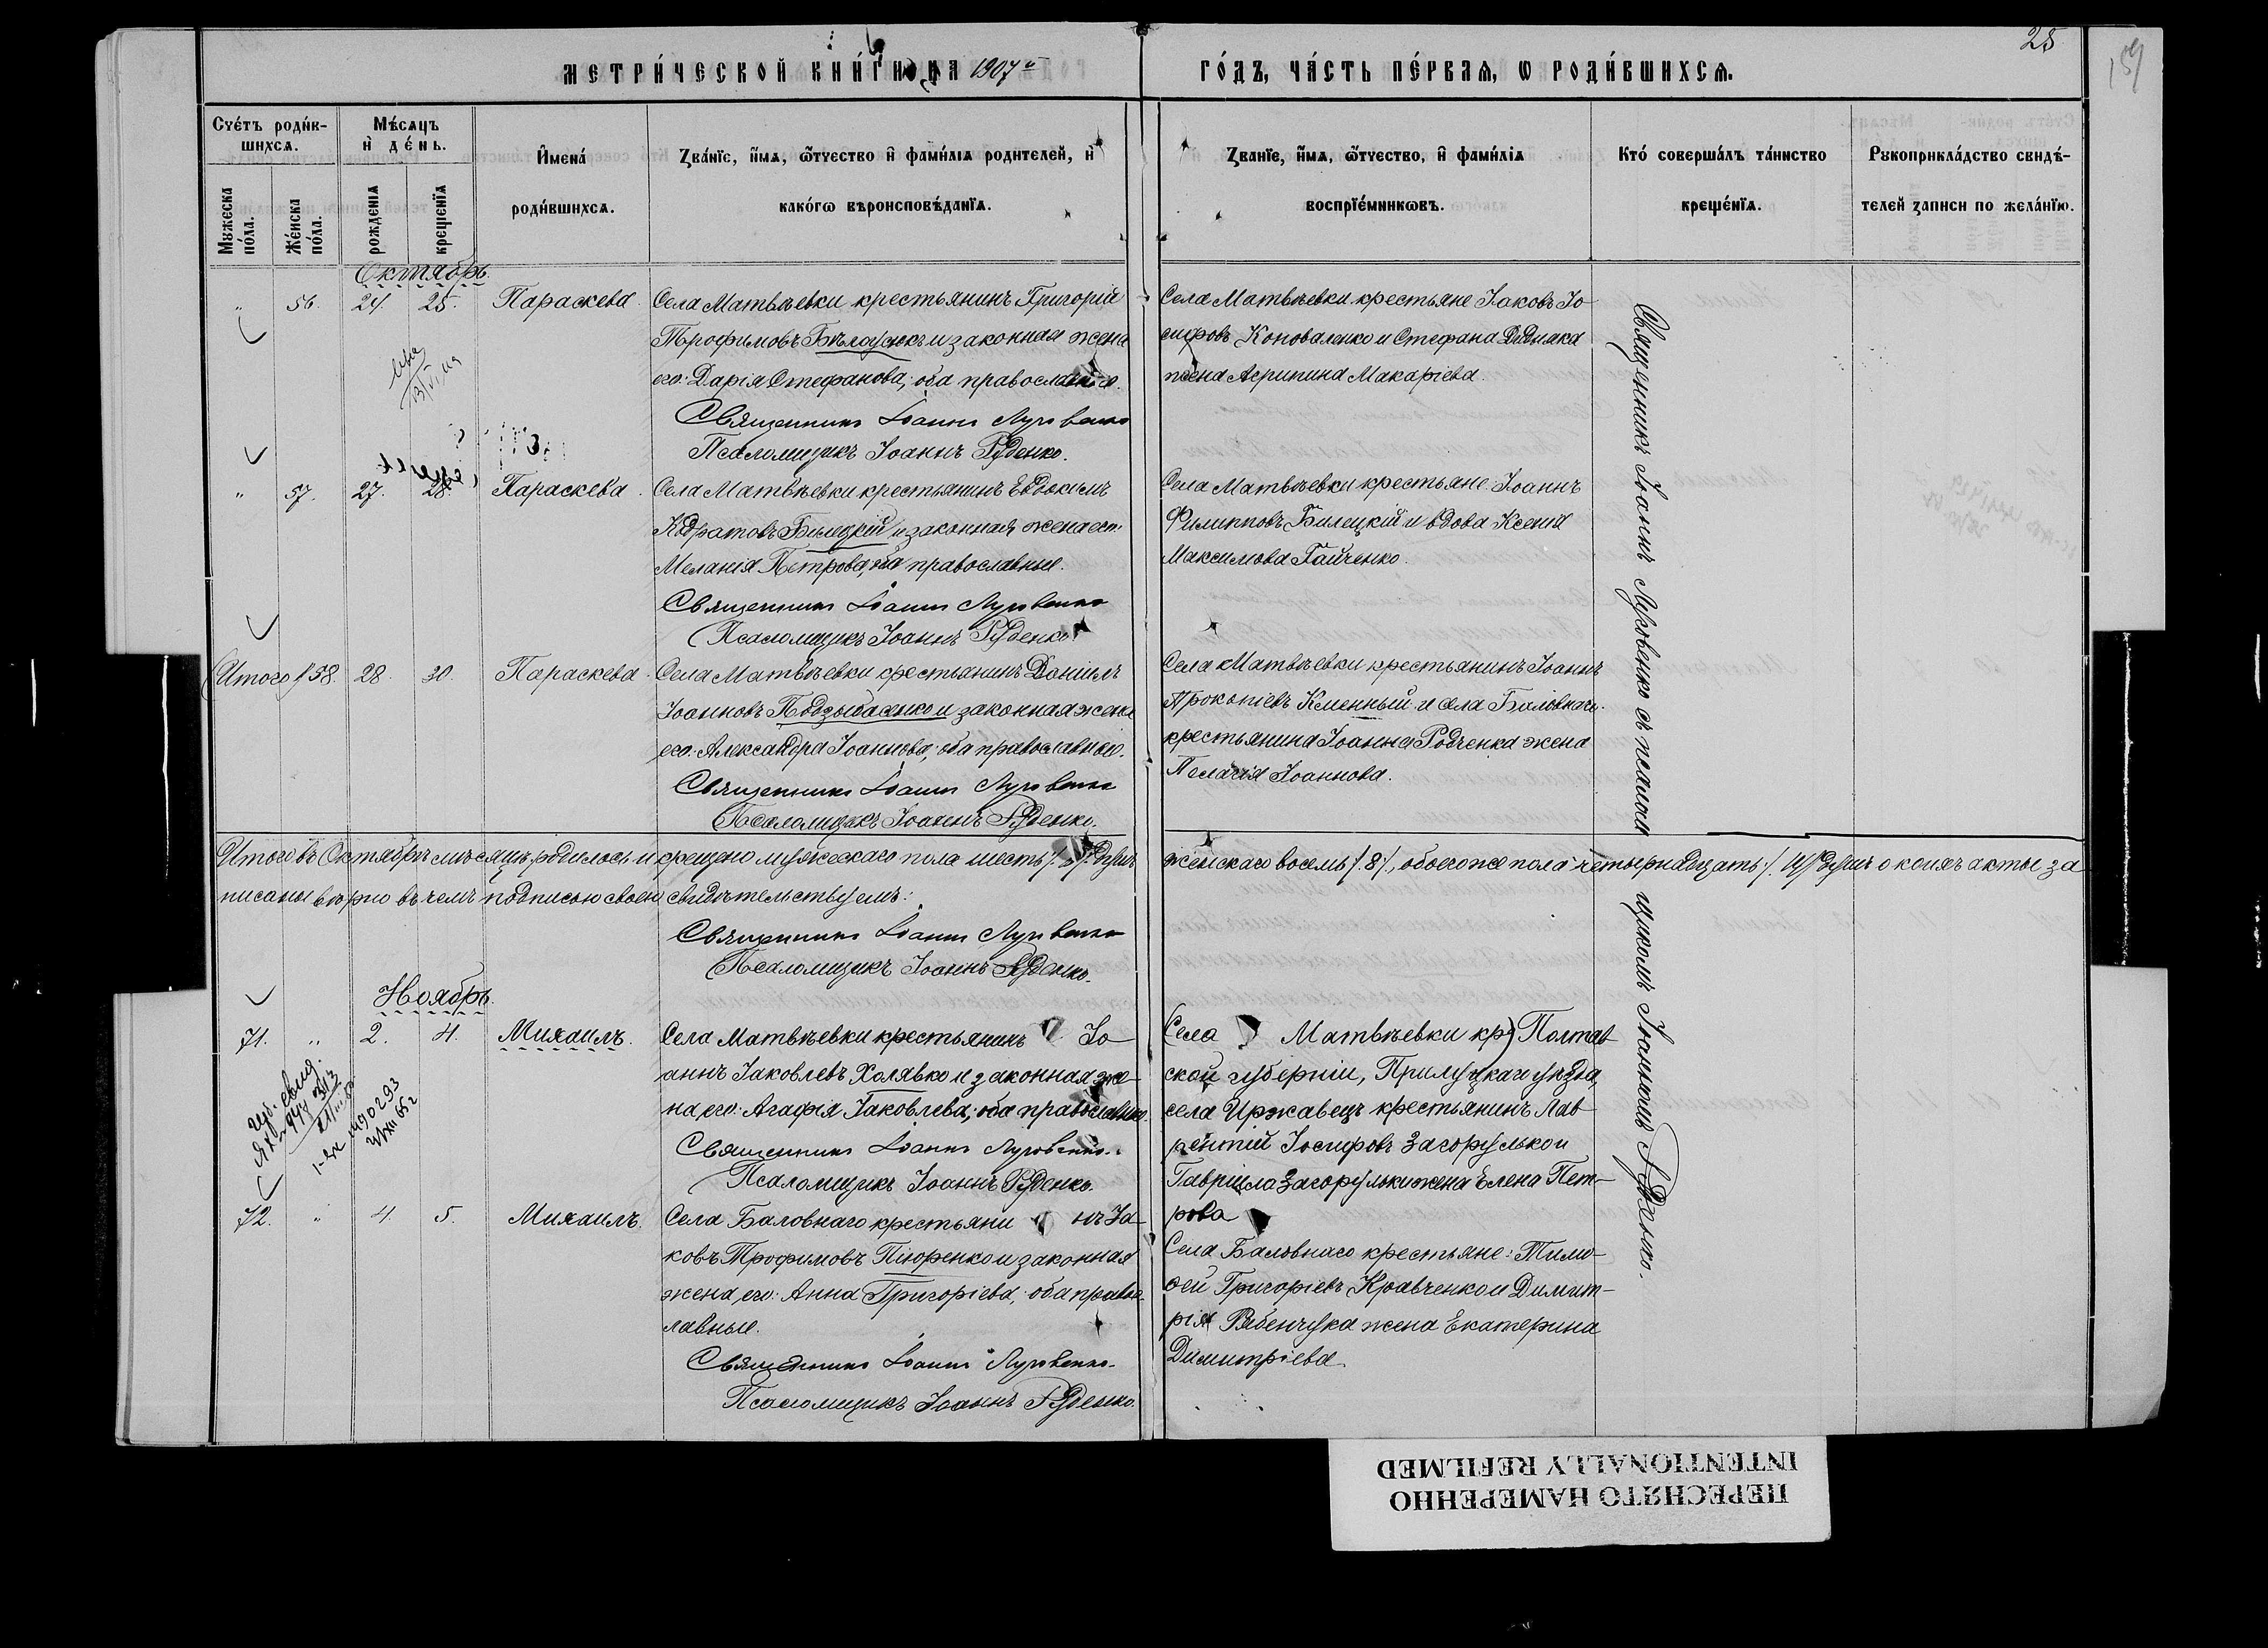 25
159
МЕТРИ́ЧЕСКОЙ КНИ́ГИ НА 1907й ГО́ДЪ, ЧА́СТЬ ПЕ́РВАѦ, Ѡ РОДИ́ВШИХСѦ.
Сче́тъ роди́вшихсѧ.
Мꙋжеска по́ла.
Же́нска по́ла.
Мѣ́сѧцъ и҆ де́нь.
рожденїѧ
крещенїѧ
И҆мена́ роди́вшихсѧ.
Зва́нїе, и҆́мѧ, ѻ҆́тчество и҆ фами́лїѧ родителей, и҆ како́гѡ вѣроисповѣ́данїѧ.
Зва́нїе, и҆́мѧ, ѻ҆́тчество, и҆ фами́лїѧ воспрїе́мникѡвъ.
Кто́ соверша́лъ та́инство креще́нїѧ.
Рꙋкоприкла́дство свидѣ́телей записи по жела́нїю.
Октябрь.
" 56. 24. 25. Параскева.
Села Матвѣевки крестьянинъ Григорій
Трофимовъ Бѣлоусъ и законная жена
его: Дарія Стефанова; оба православные.
Священникъ Іоаннъ Луговенко
Псаломщикъ Іоаннъ Руденко.
Села Матвѣевки крестьяне Іаковъ Іо
сифовъ Коноваленко и Стефана
жена Агрипина Макаріева.
" 57. 27. 28. Параскева.
Села Матвѣевки крестьянинъ Евдокимъ
Кодратовъ Билецкій и законная жена его:
Меланія Петрова, оба православные.
Священникъ Іоаннъ Луговенко
Псаломщикъ Іоаннъ Руденко.
Села Матвѣевки крестьяне: Іоаннъ
Филипповъ Билецкій и вдова Ксенія
Максимова Гайченко.
(Итого) 58. 28. 30. Параскева.
Села Матвѣевки крестьянинъ Даніилъ
Іоанновъ и законная жена
его: Александра Іоаннова; оба православные.
Священникъ Іоаннъ Луговенко
Псаломщикъ Іоаннъ Руденко.
Села Матвѣевки крестьянинъ Іоаннъ
Прокопіевъ Кменный и села Баловнаго
крестьянина Іоанна Родченка жена
Пелагія Іоаннова.
Итого въ Октябрѣ мѣсяцѣ родилось и крещено мужескаго пола шесть душъ женскаго восемь /.8/., обоего же пола четырнадцать /.14/. душъ о коихъ акты за
писаны вѣрно въ чемъ подписью своею свидѣтельствуемъ:
Священникъ Іоаннъ Луговенко
Псаломщикъ Іоаннъ Руденко.
Ноябрь.
71. " 2. 4. Михаилъ.
Села Матвѣевки крестьянинъ Іо
аннъ Іаковлевъ Холявко и законная же-
на его: Агафія Іаковлева; оба православные.
Священникъ Іоаннъ Луговенко.
Псаломщикъ Іоаннъ Руденко.
Села Матвѣевки кр) Полтав
ской губерніи, Прилуцкаго уѣзда,
села Иржавецъ крестьянинъ Лав
рентій Іосифовъ Загорулько и
Гавріила Загорульки жена Елена Пет-
рова
72. " 4. 5. Михаилъ.
Села Баловнаго крестьянинъ Іа-
ковъ Трофимовъ и законная
жена его: Анна Григоріева; оба право-
лавные.
Священникъ Іоаннъ Луговенко.
Псаломщикъ Іоаннъ Руденко.
Села Баловнаго крестьяне: Тимо-
фей Григоріевъ Кравченко и Димит-
рія Рябенчука жена Екатерина
Димитріева.
Священникъ Іоаннъ Луговенко съ псалом
щикомъ Іоанномъ Руденко.
ПЕРЕСНЯТО НАМЕРЕННО
INTENTIONALLY REFILMED